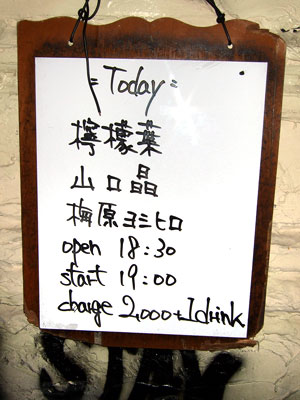 = Today =
檸檬葉
山口晶
梅原ヨシヒロ
open 18:30
start 19:00
charge 2,000+1drink